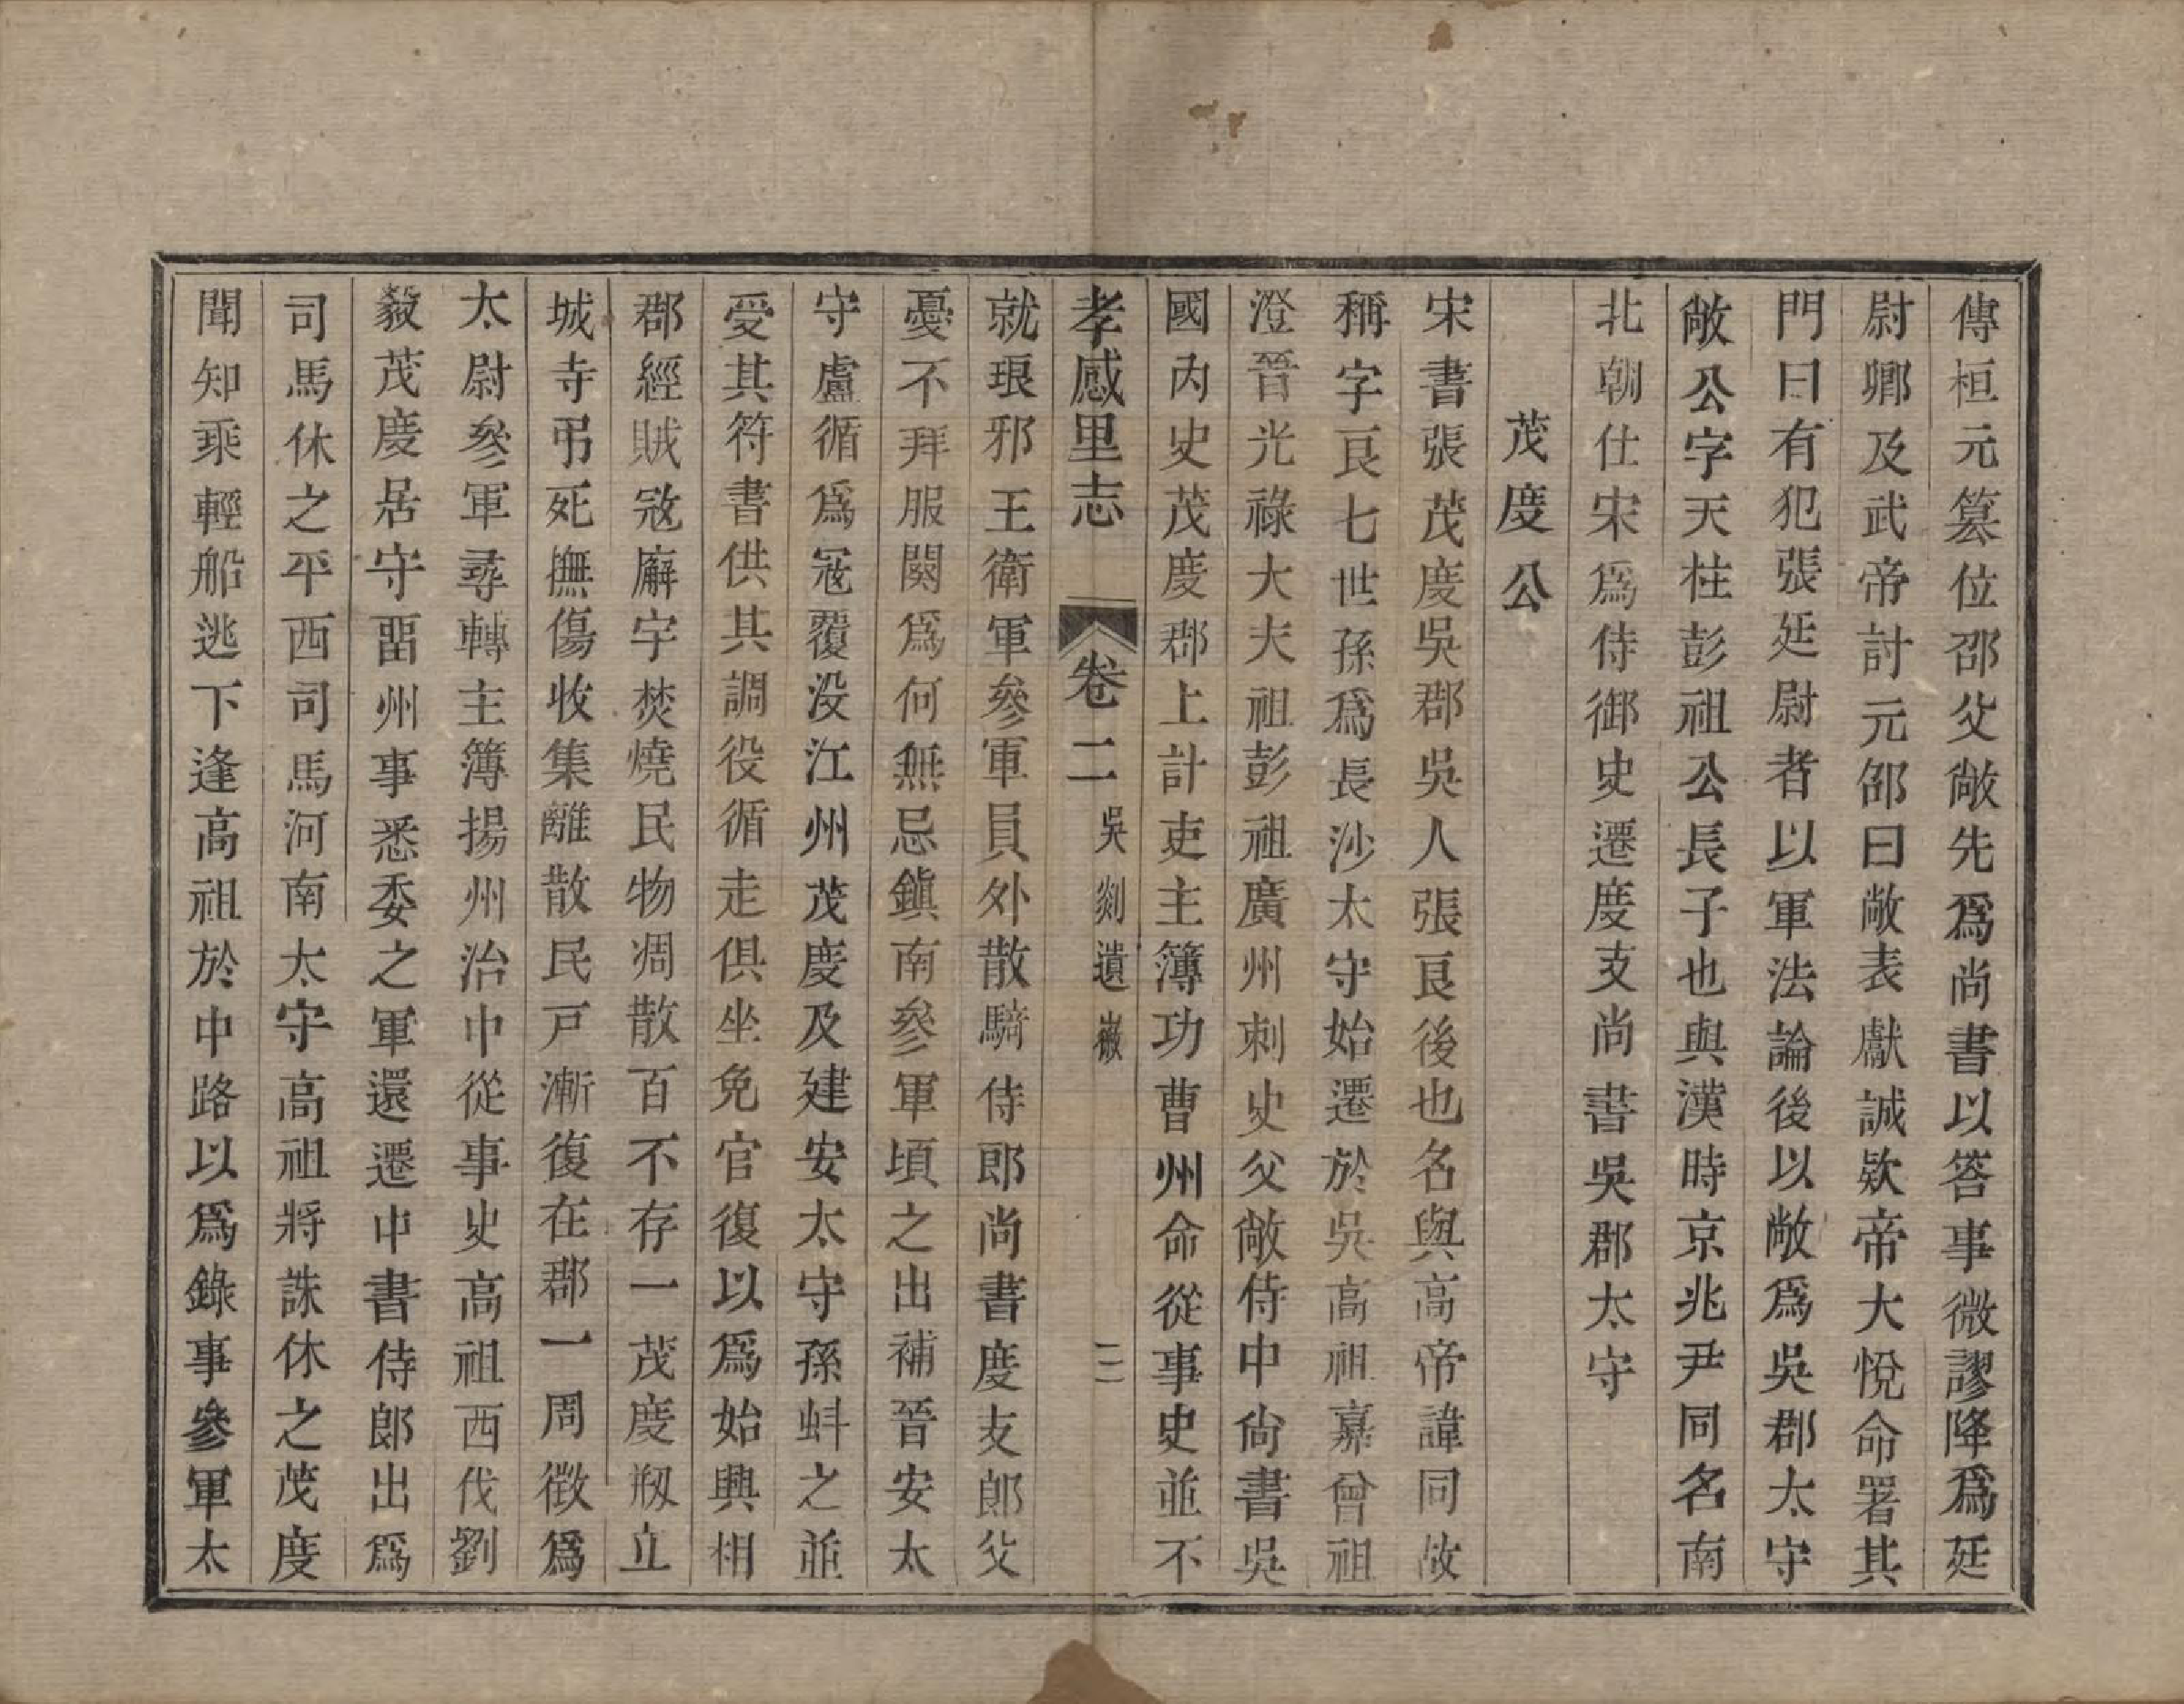 傳桓元篡位邵父敞先爲尚書以答事微謬降爲廷
尉卿及武帝討元邵曰敞表獻誠欵帝大悅命署其
門曰有犯張廷尉者以軍法論後以敞爲吳郡太守
敞公字天柱彭祖公長子也與漢時京兆尹同名南
北朝仕宋爲侍御史遷度支尚書吳郡太守
茂度公
宋書張茂度吳郡吳人張良後也名與高帝諱同故
稱字良七世孫爲長沙太守始遷於吳高祖嘉曾祖
澄晉光祿大夫祖彭祖廣州刺史父敞侍中尙書吳
國內史茂度郡上計吏主簿功曹州命從事史並不
孝感里志 卷二 吳剡遺徽 二
就琅邪王衛軍參軍員外散騎侍郎尚書度支郎父
憂不拜服闋爲何無忌鎭南參軍頃之出補晉安太
守盧循爲冦覆沒江州茂度及建安太守孫蚪之並
受其符書供其調役循走俱坐免官復以爲始興相
郡經賊冦廨宇焚燒民物凋散百不存一茂度剏立
城寺弔死撫傷收集離散民戸漸復在郡一周徵爲
太尉參軍尋轉主簿揚州治中從事史高祖西伐劉
毅茂度居守畱州事悉委之軍還遷中書侍郎出爲
司馬休之平西司馬河南太守高祖將誅休之茂度
聞知乘輕船逃下逢高祖於中路以爲錄事參軍太